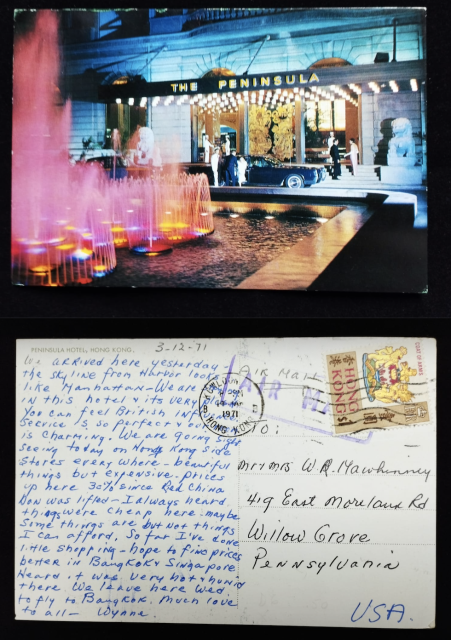 THE PENINSULA
PENINSULA HOTEL, HONG KONG.
3-12-71
We arrived here yesterday -
the skyline from Harbor looks
like Manhattan - We are
in this hotel & its very
You can feel British
Service is so perfect &
is charming. We are going sight
seeing today on Hong Kong side
Stores every where - beautiful
things but expensive. Prices
up here 30% since Red China
was lifted - I always heard
things were cheap here. maybe
Some things are but not things
I can afford. So far I've done
little Shopping - hope to find prices
better in Bangkok & Singapore
Heard it was very hot & humid
there. We leave here Wed.
to fly to Bangkok. Much love
to all - Wynne.
Air Mail
AIR MAIL
KOWLOON
1971
HONG KONG
HONG KONG
COAT OF ARMS
TO:
Mr & Mrs W.R. Mawhinney
419 East Moreland Rd
Willow Grove
Pennsylvania
USA.